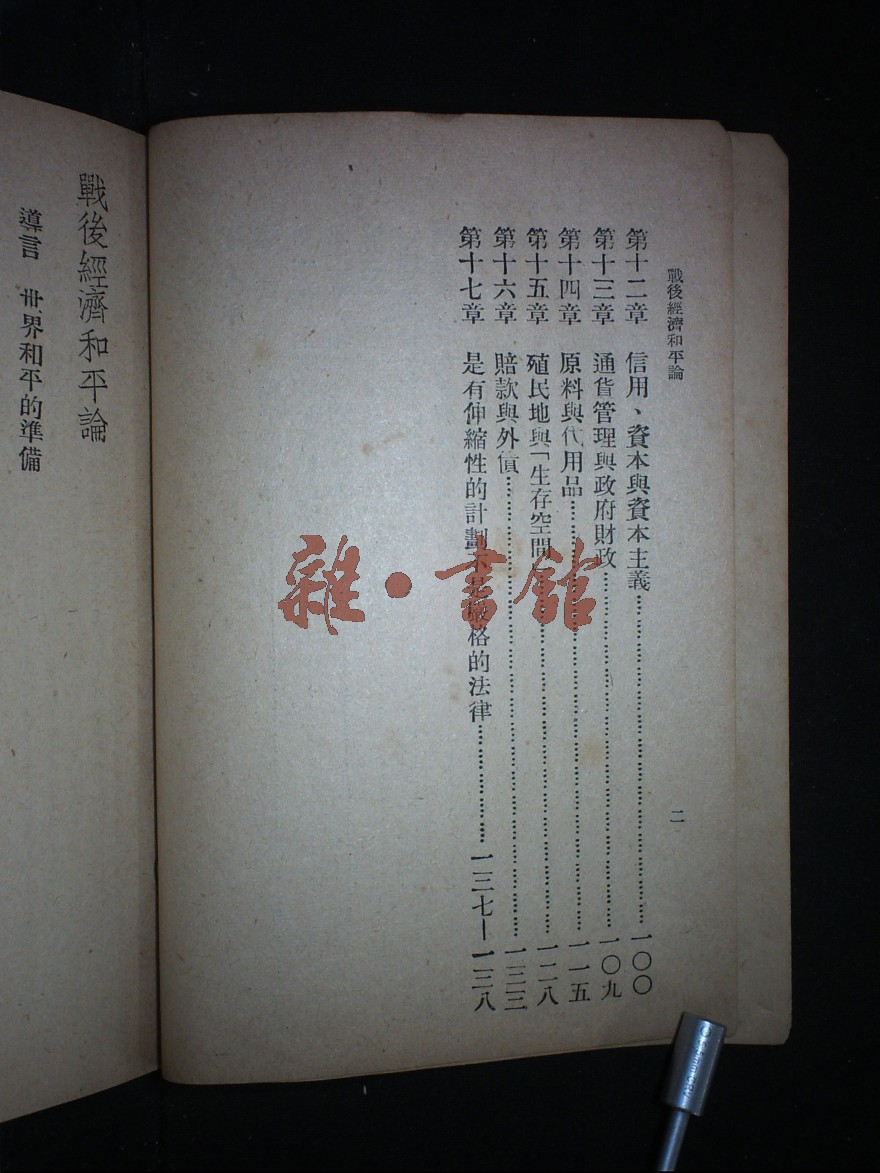 戰後經濟和平論
二
第十二章 信用、資本與資本主義……一〇〇
第十三章 通貨管理與政府財政……一〇九
第十四章 原料與代用品……一一五
第十五章 殖民地與「生存空間……一二八
第十六章 賠款與外債……一三三
第十七章 是有伸縮性的計劃不是嚴格的法律……一三七—一三八
戰後經濟和平論
導言 世界和平的準備
雜·書館